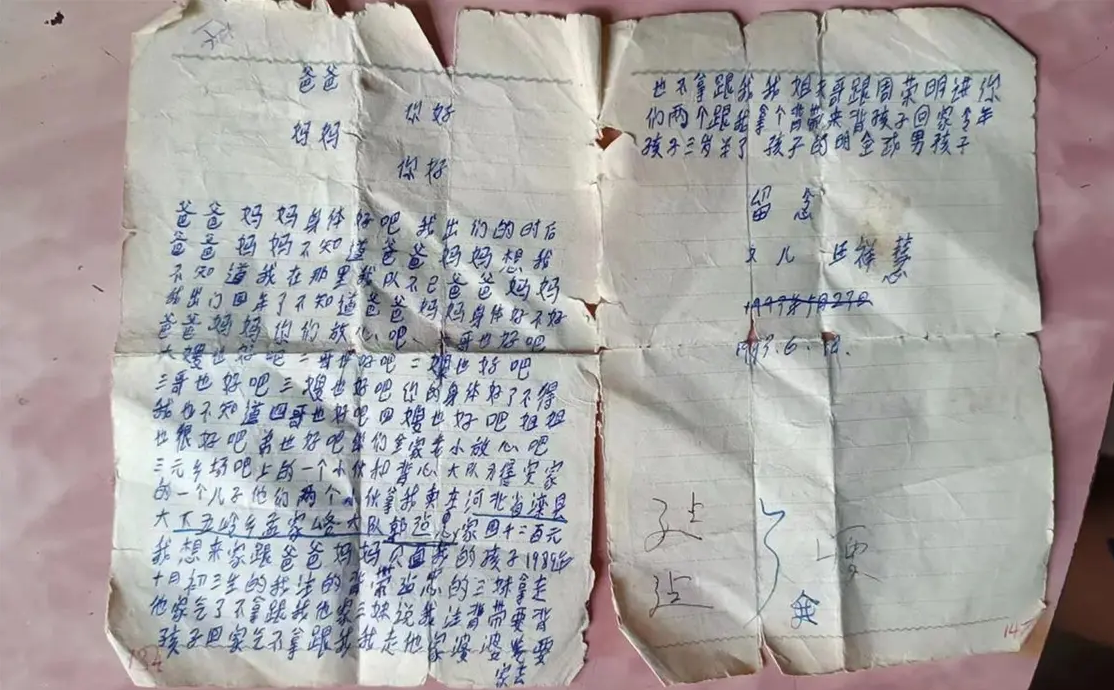 爸爸
你好
妈妈
你好
爸爸妈妈身体好吧 我出们的时后
爸爸妈妈不知道爸爸妈妈想我
不知道我在那里我队不己爸爸妈妈
我出门四年了不知道爸爸妈妈身体好不好
爸爸妈妈你们放心吧 哥也好吧
大嫂也好吧二哥也好吧二嫂也好吧
三哥也好吧三嫂也好吧你的身体好了不得
我也不知道四哥也好吧四嫂也好吧姐姐
也很好吧弟也好吧你们全家老小放心吧
三元乡场吧上的一个小伙和背心大队方得安家
的一个儿子他们两个小伙拿我卖在河北省滦县
大下五岭乡孟家峪大队 家四十二百元
我想来家跟爸爸妈妈 我的孩子1989年
十月初三生的我注的背带 的三妹拿走
他家去了不拿跟我他家三妹说我注背带要背
孩子回家去不拿跟我我走他家婆婆先要
家去
也不拿跟我我姐夫哥跟周荣明进你
们两个跟我拿个背带来背孩子回家今年
孩子三岁半了 孩子的明金成男孩子
留念
女儿 祥慧
1993.6.12.
要
184
147